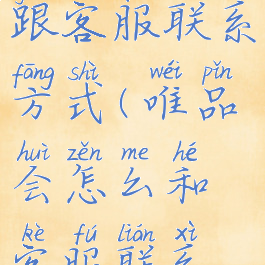 跟客服联系
fāng shì wéi pǐn
方式(唯品
huì zěn me hé
会怎么和
kè fú lián xì
客服联系